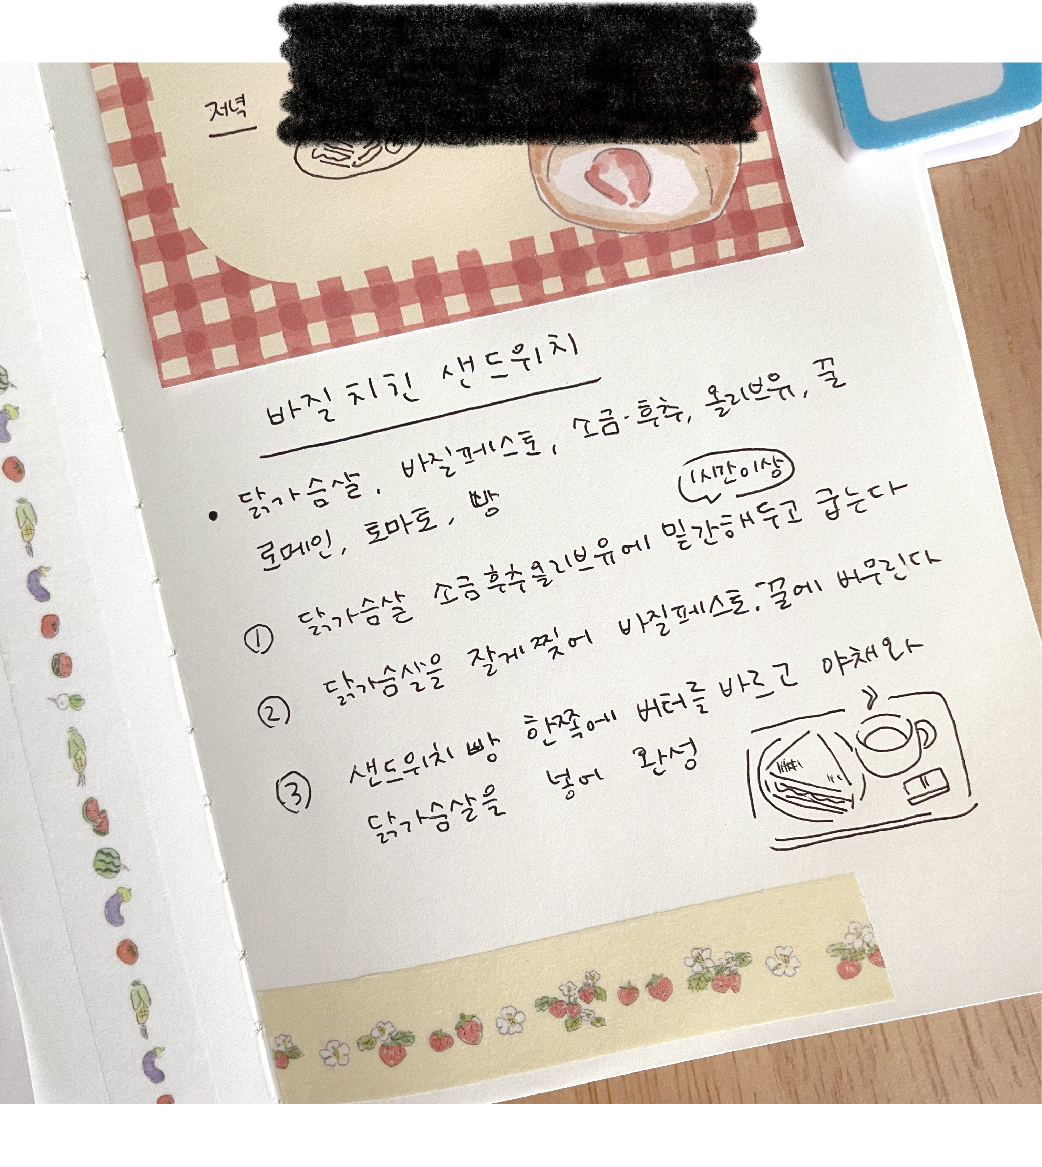 저녁
바질 치킨 샌드위치
• 닭가슴살, 바질페스토, 소금·후추, 올리브유, 꿀
로메인, 토마토, 빵
1시간이상
① 닭가슴살 소금후추올리브유에 밑간해두고 굽는다
② 닭가슴살을 잘게찢어 바질페스토, 꿀에 버무린다
③ 샌드위치 빵 한쪽에 버터를 바르고 야채와
닭가슴살을 넣어 완성